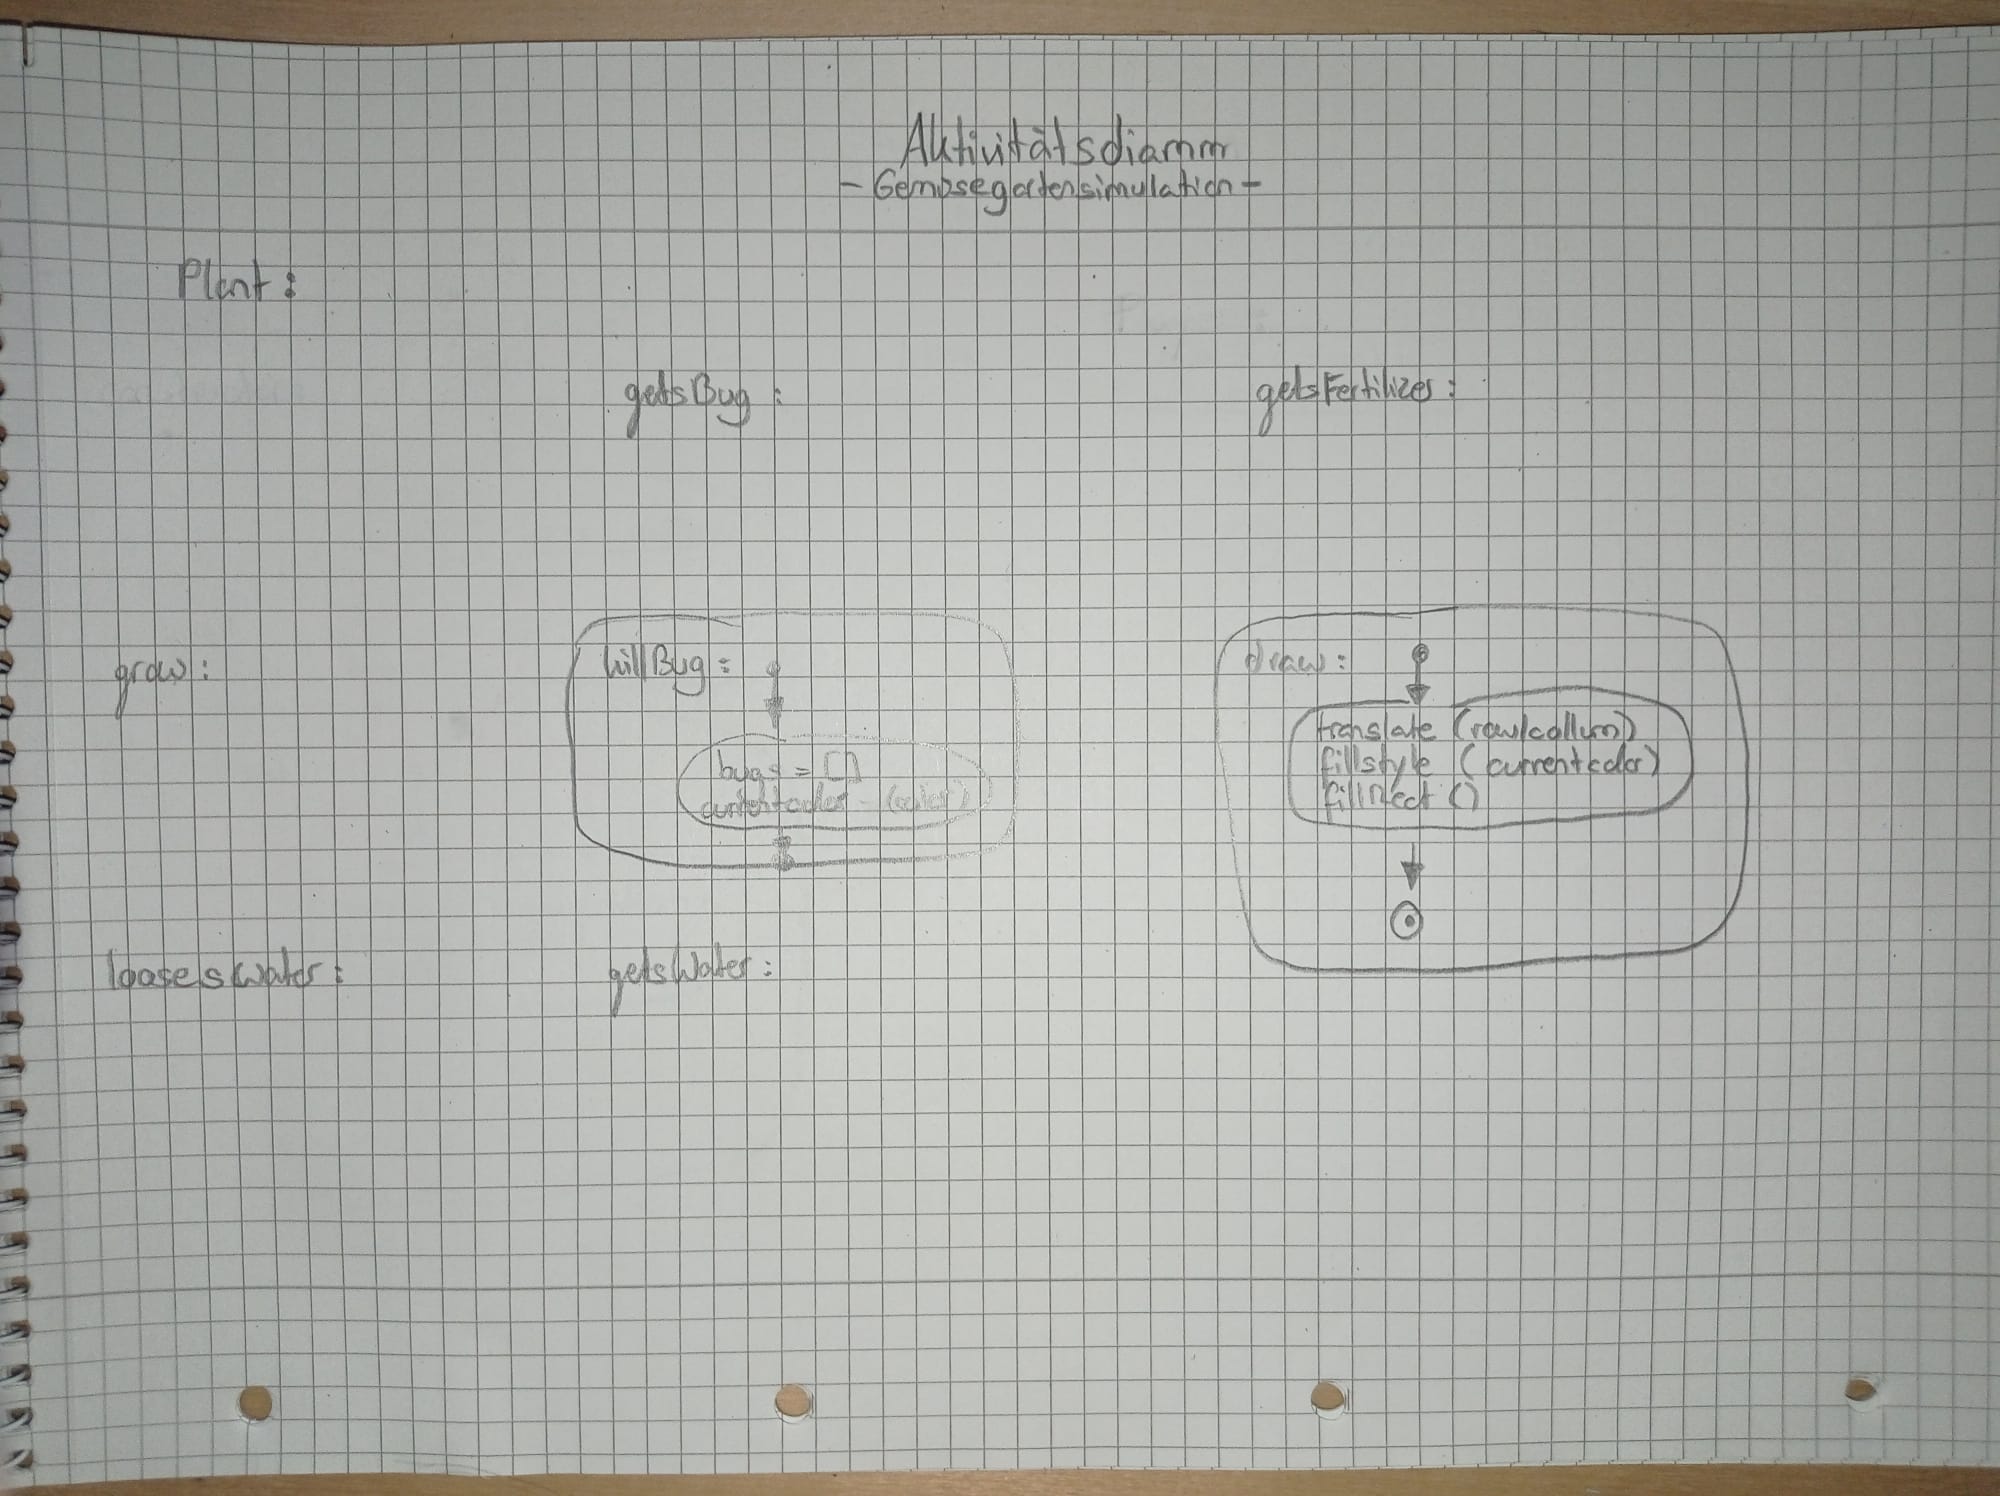 Aktivitätsdiamm
- Gemüsegartensimulation -
Plant:
getsBug:
getsFertilizer:
grow:
killBug:
bugs = []
currentcolor = (color)
draw:
translate (row/collum)
fillstyle (currentcolor)
fillRect ()
looseswater:
getsWater: